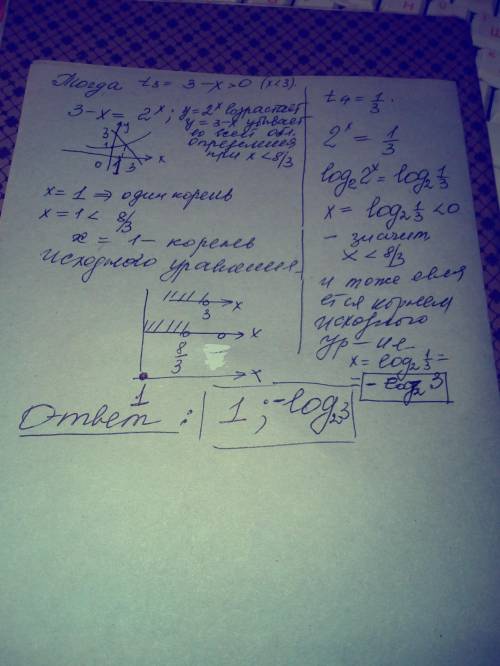 Тогда t₃ = 3-x > 0 (x<3).
3-x = 2ˣ; y=2ˣ возрастает
y = 3-x убывает
во всей обл.
определения
при x < 8/3
y
3
1
0 1 3 x
x = 1 ⇒ один корень
x = 1 < 8/3
x = 1 - корень
исходного уравнения.
3 x
8/3 x
1 x
t₄ = 1/3.
2ˣ = 1/3
log₂2ˣ = log₂ 1/3
x = log₂ 1/3 < 0
- значит
x < 8/3
и тоже явля
ется корнем
исходного
ур-ие
x = log₂ 1/3 =
= -log₂ 3
Ответ : 1 ; -log₂3